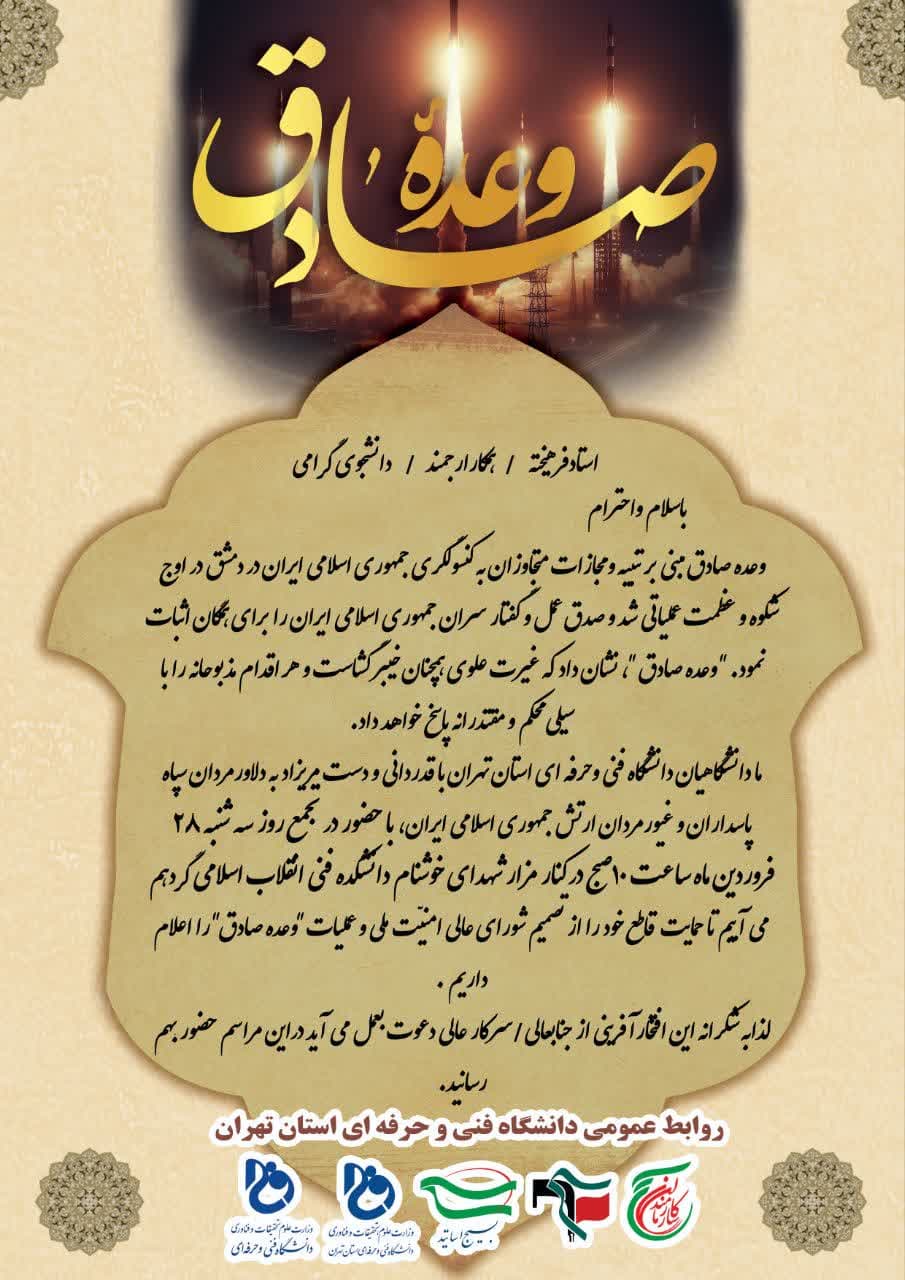 وعده صادق
استاد فرهیخته / همکار ارجمند / دانشجوی گرامی
باسلام و احترام
وعده صادق مبنی بر تنبیه و مجازات متجاوزان به کنسولگری جمهوری اسلامی ایران در دمشق در اوج
شکوه و عظمت عملیاتی شد و صدق عمل و گفتار سران جمهوری اسلامی ایران را برای همگان اثبات
نمود. "وعده صادق "، نشان داد که غیرت علوی همچنان خیبرگشاست و هر اقدام مذبوحانه را با
سیلی محکم و مقتدرانه پاسخ خواهد داد.
ما دانشگاهیان دانشگاه فنی و حرفه ای استان تهران با قدردانی و دست مریزاد به دلاورمردان سپاه
پاسداران و غیورمردان ارتش جمهوری اسلامی ایران، با حضور در تجمع روز سه شنبه ۲۸
فروردین ماه ساعت ۱۰صبح در کنار مزار شهدای خوشنام دانشکده فنی انقلاب اسلامی گردهم
می آییم تا حمایت قاطع خود را از تصمیم شورای عالی امنیّت ملی و عملیات "وعده صادق" را اعلام
داریم .
لذا به شکرانه این افتخارآفرینی از جنابعالی / سرکار عالی دعوت بعمل می آید دراین مراسم حضور بهم
رسانید.
روابط عمومی دانشگاه فنی و حرفه ای استان تهران
بسیج اساتید
وزارت علوم تحقیقات و فناوری
دانشگاه فنی و حرفه ای استان تهران
وزارت علوم تحقیقات و فناوری
دانشگاه فنی و حرفه ای